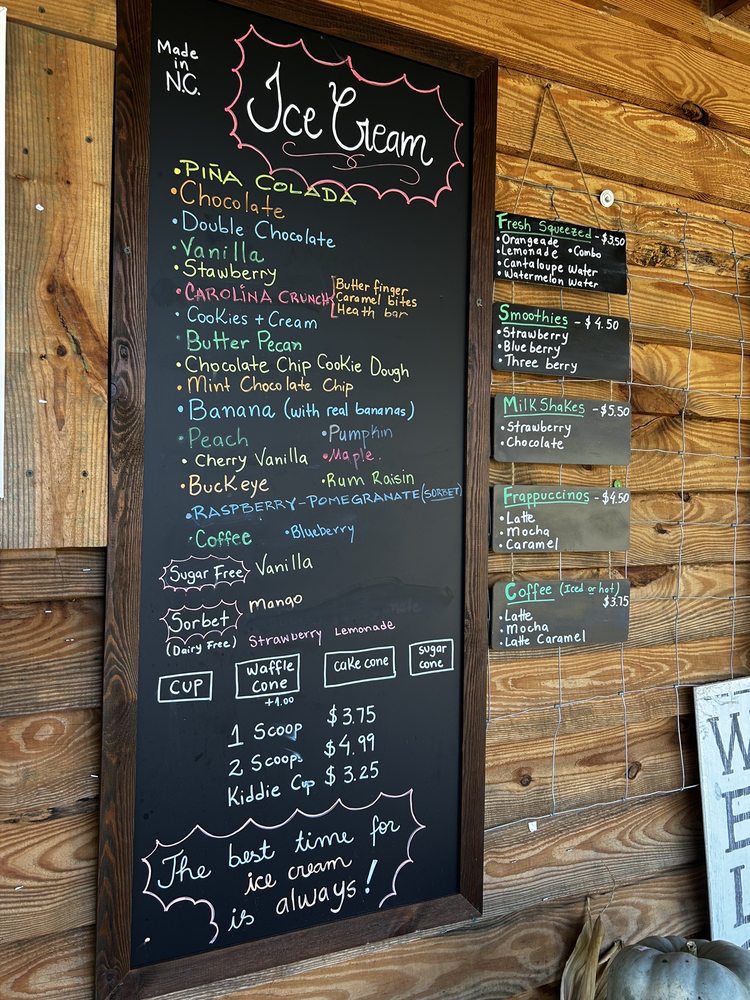 Made
in
N.C.
Ice Cream
• PIÑA COLADA
• Chocolate
• Double Chocolate
• Vanilla
• Stawberry
• CAROLINA CRUNCH
Butter finger
Caramel bites
Heath bar
• Cookies + Cream
• Butter Pecan
• Chocolate Chip Cookie Dough
• Mint Chocolate Chip
• Banana (with real bananas)
• Peach • Pumpkin
• Cherry Vanilla • Maple.
• Buckeye • Rum Raisin
• RASPBERRY-POMEGRANATE (SORBET)
• Coffee • Blueberry
Sugar Free Vanilla
Sorbet mango
(Dairy Free) Strawberry Lemonade
CUP
waffle
cone
+1.00
cake cone
sugar
cone
1 Scoop $3.75
2 Scoops $4.99
Kiddie Cup $3.25
The best time for
ice cream
is always!
Fresh Squeezed - $3.50
• Orangeade
• Lemonade • Combo
• Cantaloupe Water
• Watermelon Water
Smoothies - $4.50
• Strawberry
• Blueberry
• Three berry
MilkShakes - $5.50
• Strawberry
• Chocolate
Frappuccinos - $4.50
• Latte
• Mocha
• Caramel
Coffee (Iced or hot)
$3.75
• Latte
• Mocha
• Latte Caramel
W
E
L